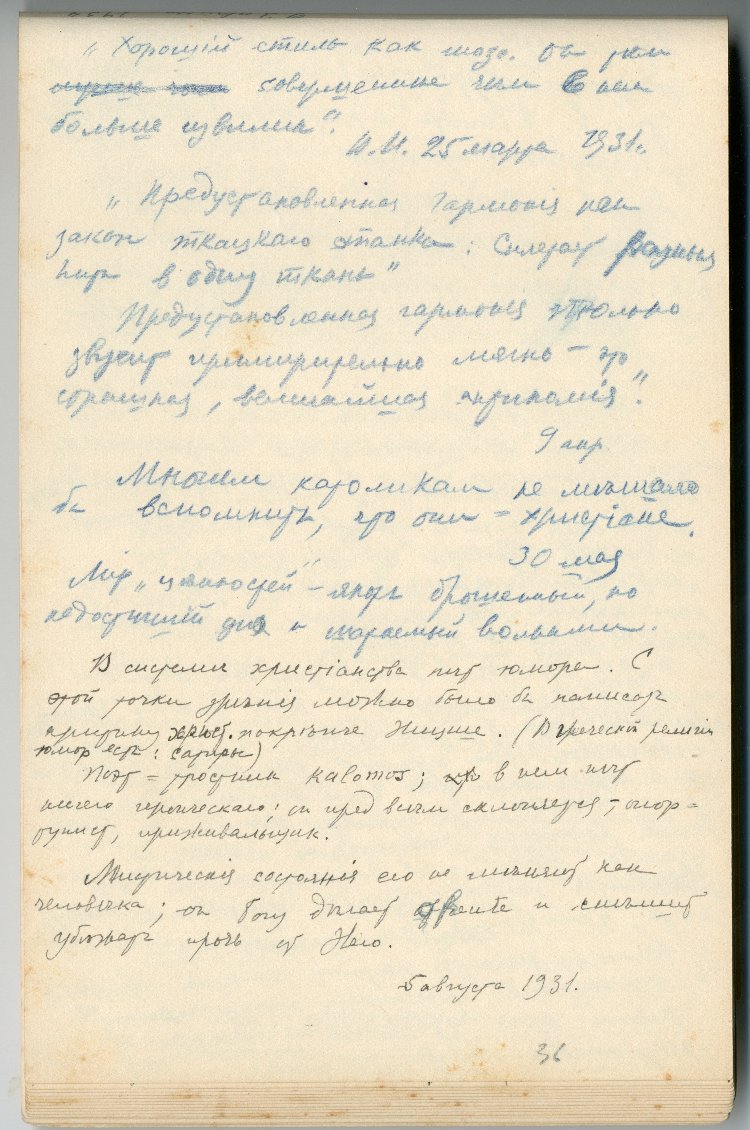 „Хорошiй стиль как мозг. Он тем
совершеннее чем в нем
больше извилин“.
И.И. 25 марта 1931 г.
„Предустановленная гармонiя как
закон ткацкаго станка: Сплетает разныя
нити в одну ткань“
Предустановленная гармонiя только
звучит примирительно мягко – это
страшная, величайшая антиномiя“.
9 апр
Многим католикам не мѣшало
бы вспомнить, что они – христiане.
30 мая
Мiр „цѣнностей“ – якорь брошенный, но
недостигшiй дна и шатаемый волнами.
В системѣ христiанства нѣт юмора. С
этой точки зрѣнiя можно было бы написать
притину христ. покрѣпче Ницше. (В греческой религiи
юмор есть: сатиры)
Поэт = тростник kalamos; в нем нѣт
ничего героическаго; он пред всѣм склоняется, – оппор-
тунист, приживальщик.
Мистическiя состоянiя его не мѣняют как
человѣка; он Богу дѣлает и спѣшит
убѣжать прочь от Него.
5 августа 1931.
36